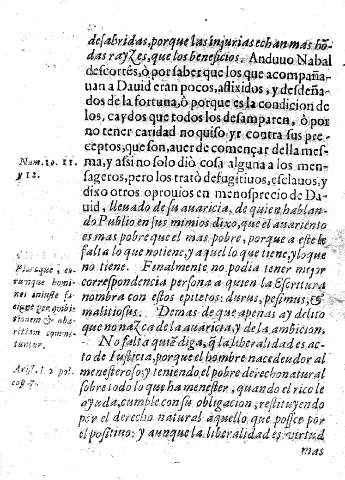 desabridas, porque las injurias echan mas hõ-
das rayzes, que los beneficios. Anduuo Nabal
descortès, ò por saber que los que acompaña-
uan a Dauid eran pocos, aflixidos, y desdeña-
dos de la fortuna, ò porque es la condicion de
los, caydos que todos los desamparen, ò por
no tener caridad no quiso yr contra sus pre-
ceptos, que son, auer de començar della mes-
Num. 10. 11.
ma, y assi no solo diò cosa alguna a los men-
y 12.
sageros, pero los tratò de fugitiuos, esclauos, y
dixo otros oprouios en menosprecio de Da-
uid, lleuado de su auaricia, de quien hablan-
do Publio en sus mimios dixo, que el auariento
es mas pobre que el mas pobre, porque a este le
falta lo que no tiene, y aquel lo que tiene, y lo que
no tiene. Finalmente no podia tener mejor
correspondencia persona a quien la Escritura
nombra con estos epitetos: durus, pesimus, &
malitiosus. Demas de que apenas ay delito
que no nazca de la auaricia, y de la ambicion.
No falta quiẽ diga, q̃ la liberalidad es ac-
to de Iusticia, porque el hombre nace deudor al
menesteroso; y teniendo el pobre derecho natural
sobre todo lo que ha menester, quando el rico le
ayuda, cumple con su obligacion, restituyendo
por el derecho natural aquello que possee por
el positiuo: y aunque la liberalidad es virtud
mas